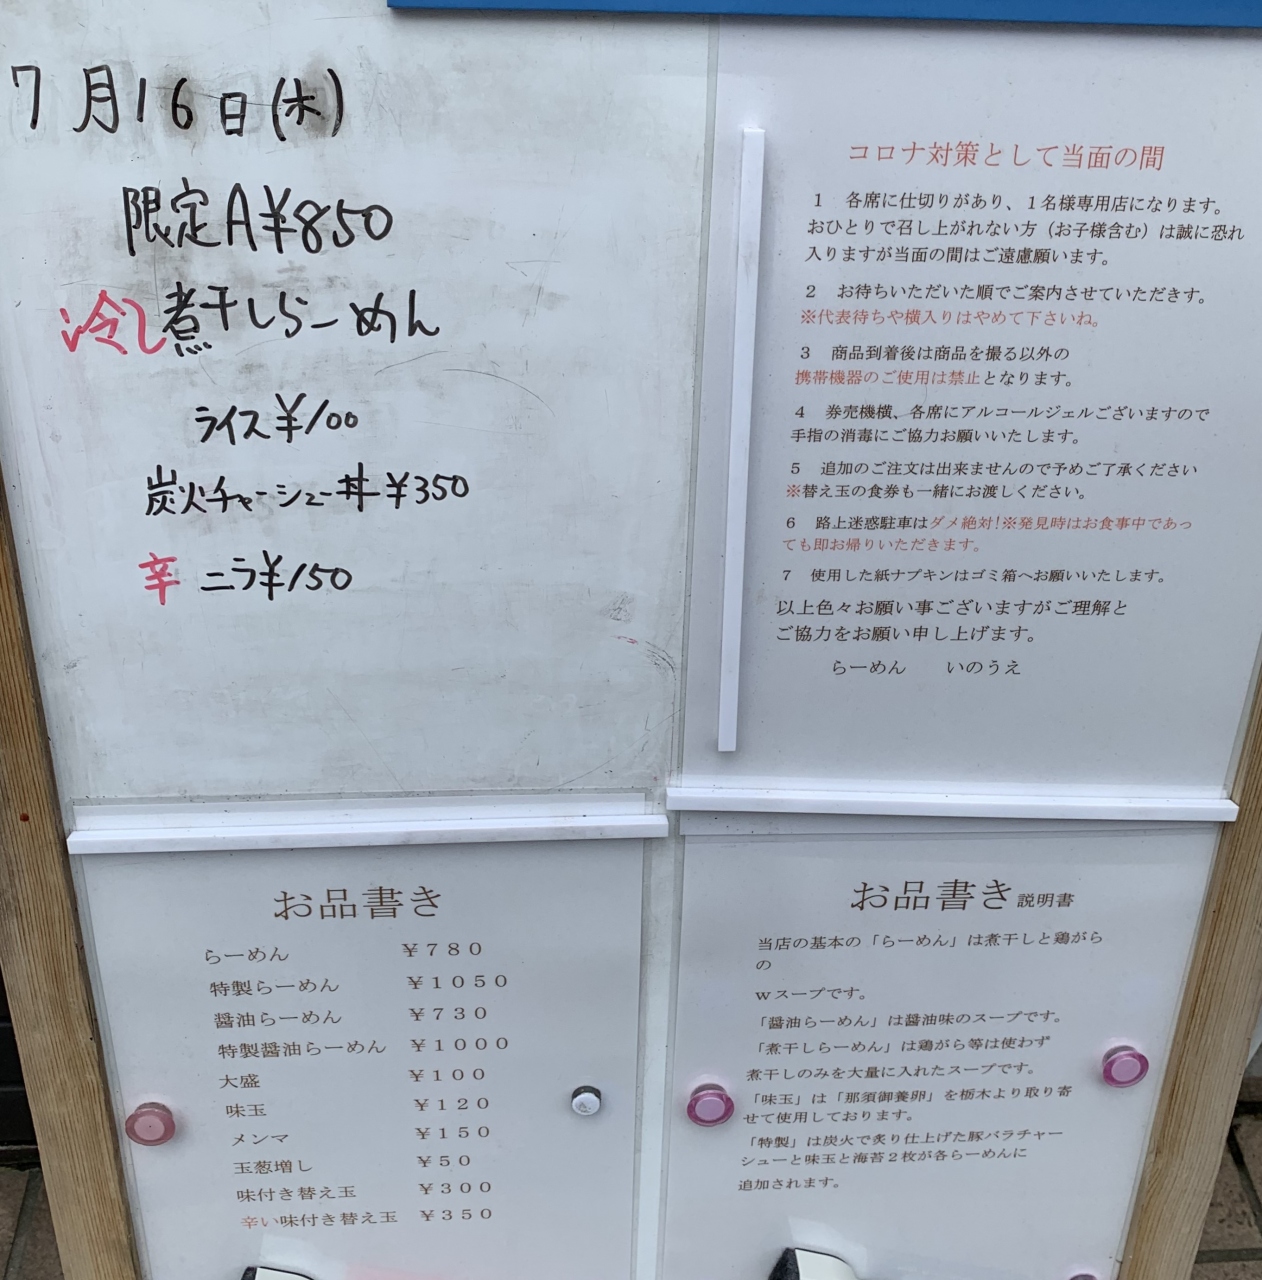 7月16日(木)
限定A¥850
冷し煮干しらーめん
ライス¥100
炭火チャーシュー丼¥350
辛 ニラ¥150
コロナ対策として当面の間
1 各席に仕切りがあり、1名様専用店になります。
おひとりで召し上がれない方（お子様含む）は誠に恐れ
入りますが当面の間はご遠慮願います。
2 お待ちいただいた順でご案内させていただきす。
※代表待ちや横入りはやめて下さいね。
3 商品到着後は商品を撮る以外の
携帯機器のご使用は禁止となります。
4 券売機横、各席にアルコールジェルございますので
手指の消毒にご協力お願いいたします。
5 追加のご注文は出来ませんので予めご了承ください
※替え玉の食券も一緒にお渡しください。
6 路上迷惑駐車はダメ絶対!※発見時はお食事中であっ
ても即お帰りいただきます。
7 使用した紙ナプキンはゴミ箱へお願いいたします。
以上色々お願い事ございますがご理解と
ご協力をお願い申し上げます。
らーめん いのうえ
お品書き
らーめん ￥780
特製らーめん ￥1050
醤油らーめん ￥730
特製醤油らーめん ￥1000
大盛 ￥100
味玉 ￥120
メンマ ￥150
玉葱増し ￥50
味付き替え玉 ￥300
辛い味付き替え玉 ￥350
お品書き説明書
当店の基本の「らーめん」は煮干しと鶏がら
の
wスープです。
「醤油らーめん」は醤油味のスープです。
「煮干しらーめん」は鶏がら等は使わず
煮干しのみを大量に入れたスープです。
「味玉」は「那須御養卵」を栃木より取り寄
せて使用しております。
「特製」は炭火で炙り仕上げた豚バラチャー
シューと味玉と海苔2枚が各らーめんに
追加されます。